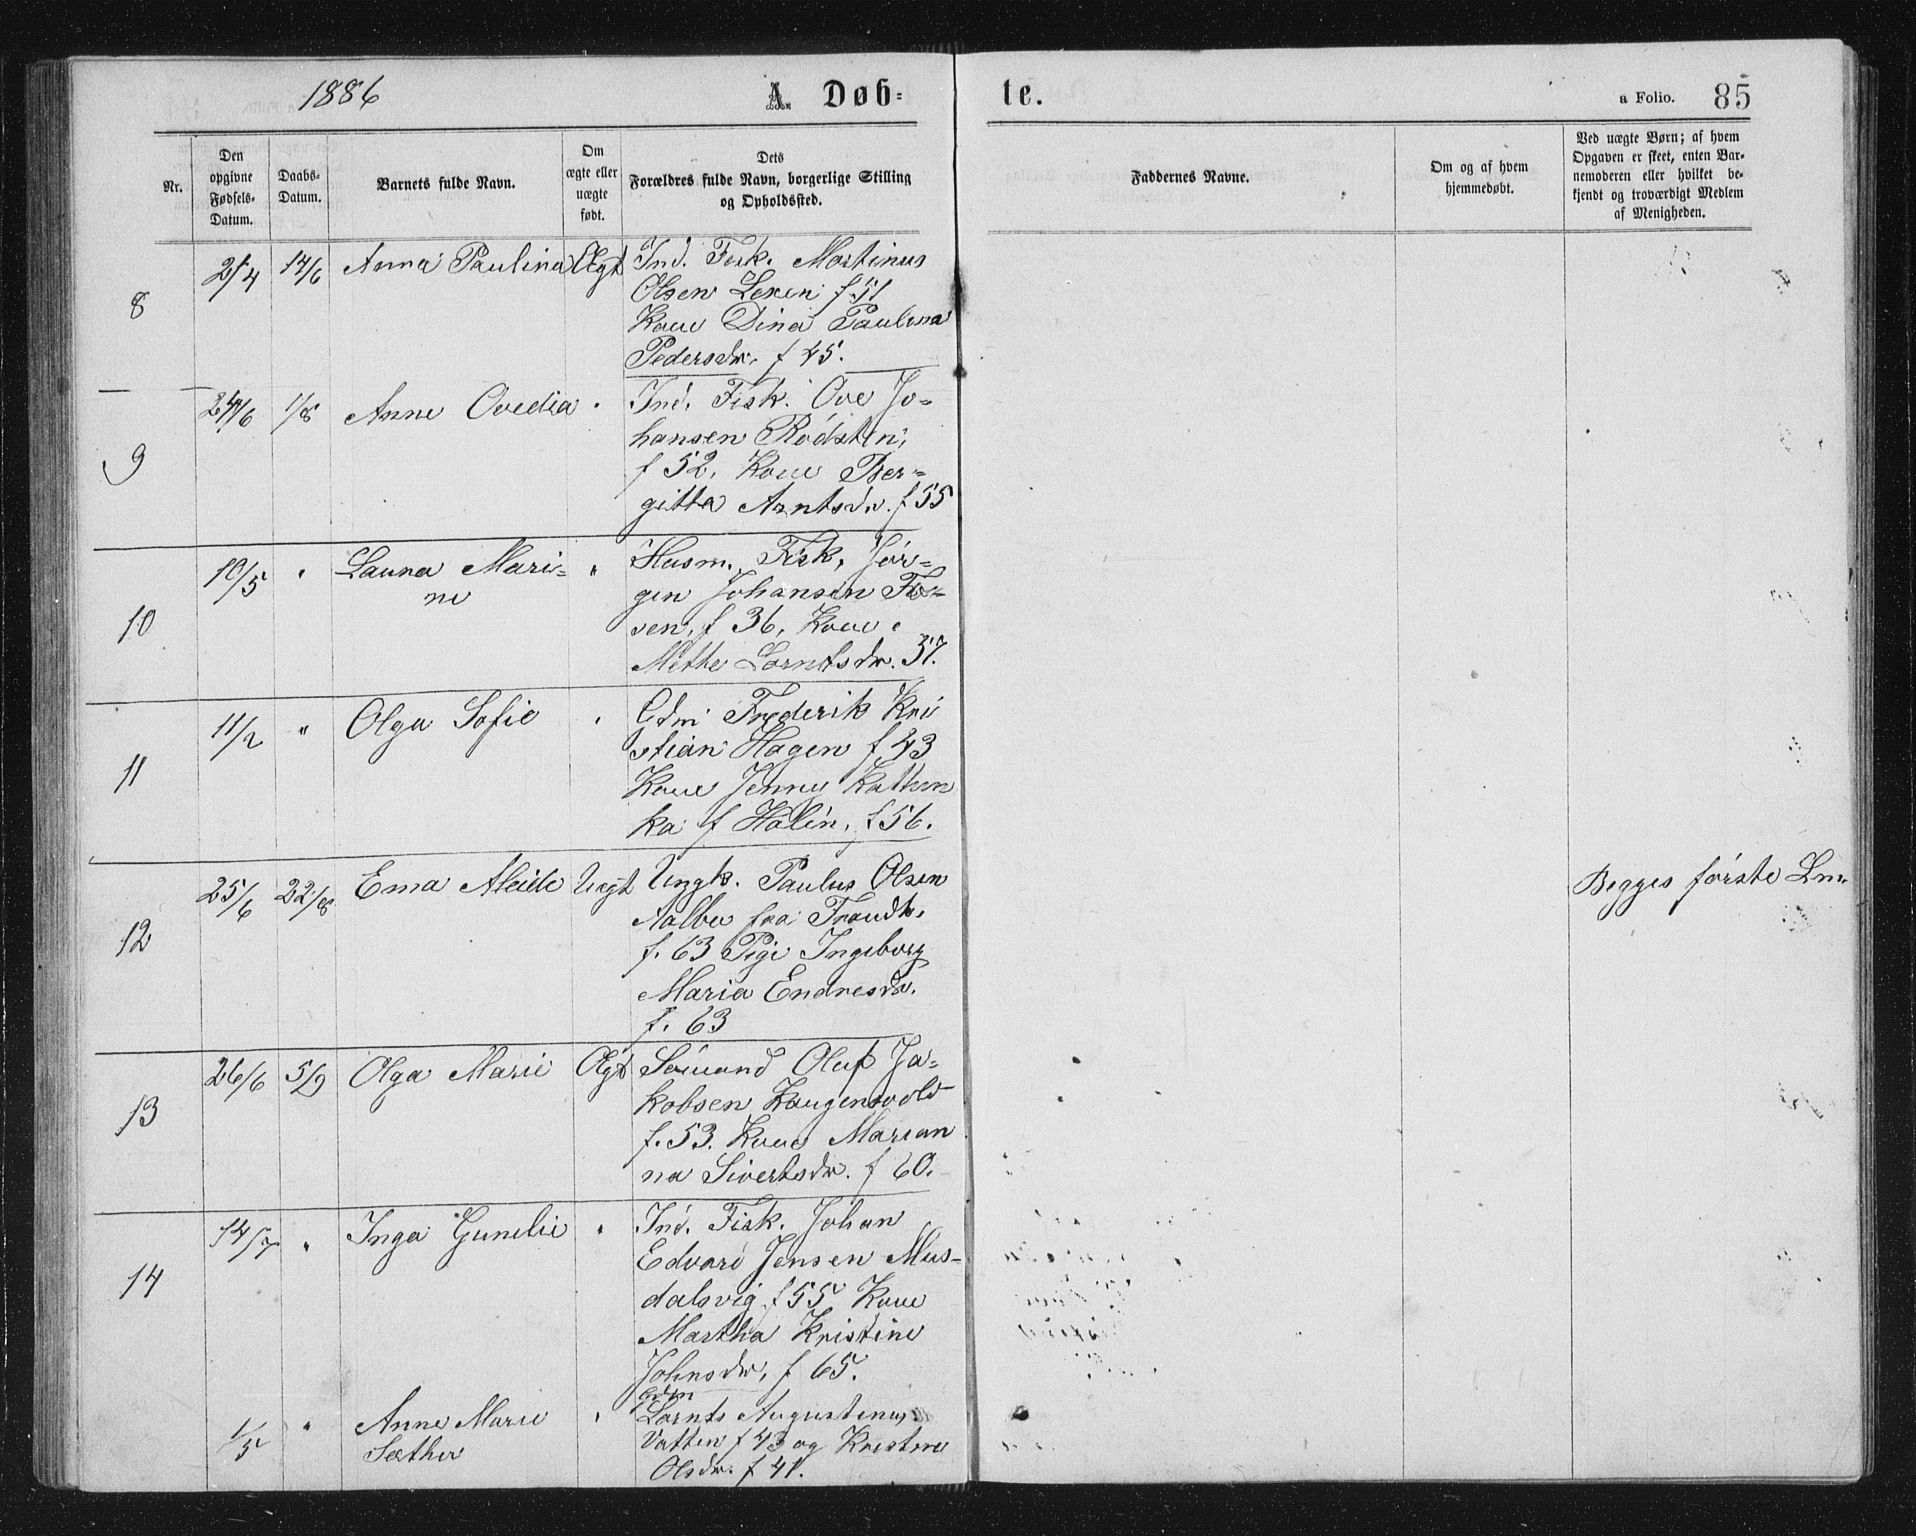 1886 A. Døb= te. a Folio. 85
Nr.
Den opgivne Fødsels-Datum.
Daabs-Datum.
Barnets fulde Navn.
Om ægte eller uægte født.
Dets Forældres fulde Navn, borgerlige Stilling og Opholdssted.
Faddernes Navne.
Om og af hvem hjemmedøbt.
Ved uægte Børn; af hvem Opgaven er skeet, enten Barnemoderen eller hvilket bekjendt og troværdigt Medlem af Menigheden.
8 2/4 14/6 Anna Paulina Ægt Ind. Fisk. Martinus
Olsen Lexen f 51
Kone Dina Paulina
Pedersdr. f 45.
9 24/6 1/8 Anne Ovedia " Ind. Fisk. Ove Jo=
hansen Rødsten,
f 52, Kone Ber=
gitta Arntsdr. f 55
10 10/5 " Laura Mari= " Husm. Fisk, Jør=
ne gen Johansen
sen, f 36, Kone
Mette Lorntsdr. 37.
11 11/2 " Olga Sofie " Gdm. Frederik Kri
stian Hagen f 43
Kone Jenny Kathin
ka f Holin, f 56.
12 25/6 22/8 Ema Aleide Uægt Ungk. Paulus Olsen Begges første Lm.
Aalbu fra
f. 63 Pige Ingeborg
Maria Endresdr.
f. 63
13 26/6 5/9 Olga Marie Ægt Sømand Oluf Ja=
kobsen Haugensvold
f. 53. Kone Marian
na Sivertsdr. f 60.
14 14/7 " Inga Gunelie " Ind. Fisk. Johan
Edvard Jensen Mus=
dalsvig f 55 Kone
Martha Kristine
Johnsdr, f 65.
1/5 " Anne Marie " Gdm
Lornts Augustinus
Sæther Vatten f 43 og Kristine
Olsdr. f 41.